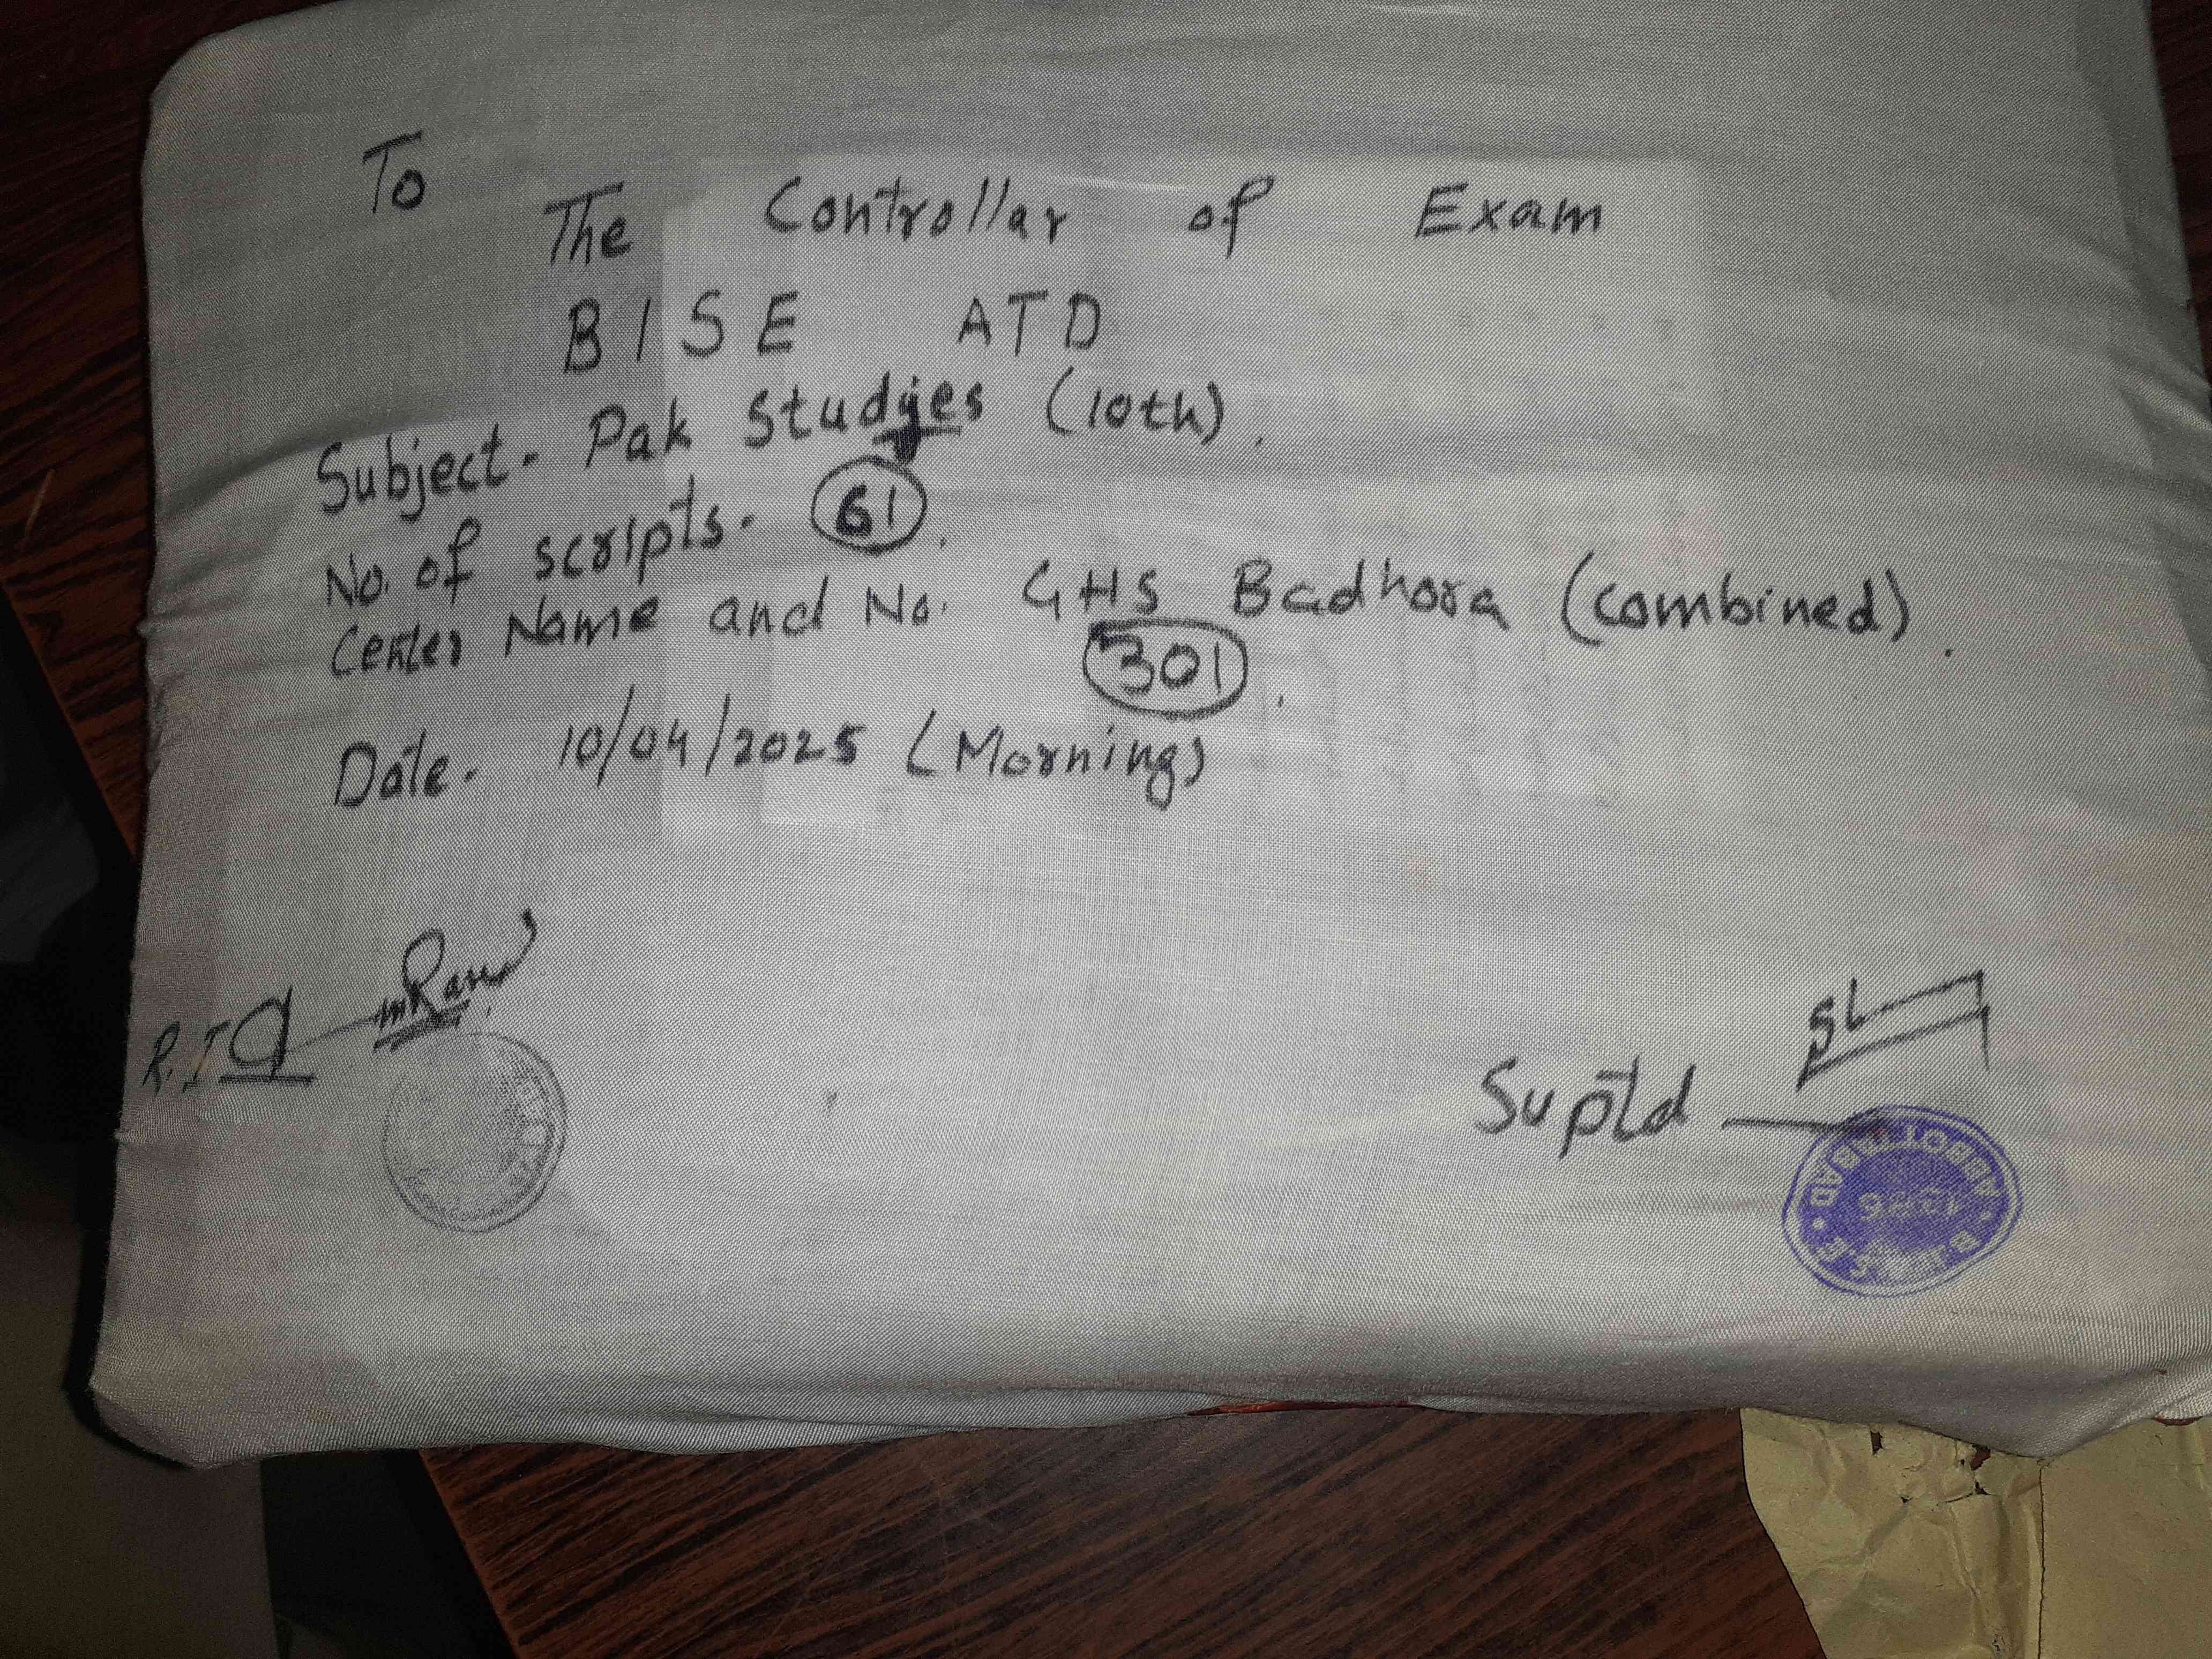 To
The Controllar of Exam
BISE ATD
Subject- Pak Studyes (10th).
No. of scripts. 61.
Center Name and No. GHS Badhora (combined).
301.
Date. 10/04/2025 (Morning)
R.I
Suptd
B.I.S.E. ABBOTTABAD